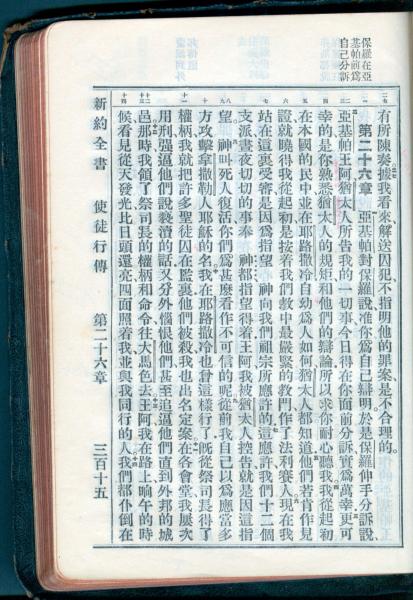 保羅在亞
基帕前爲
自己分訴
有所陳奏據我看來解送囚犯不指明他的罪案是不合理的
第二十六章 亞基帕對保羅說准你爲自己辯明於是保羅伸手分訴說
亞基帕王阿猶太人所告我的一切事今日得在你面前分訴實爲萬幸更可
幸的是你熟悉猶太人的規矩和他們的辯論所以求你耐心聽我我從起初
在本國的民中並在耶路撒冷自幼爲人如何猶太人都知道他們若肯作見
證就曉得我從起初是按着我們教中最嚴緊的教門作了法利賽人現在我
站在這裏受審是因爲指望 神向我們祖宗所應許的這應許我們十二個
支派晝夜切切的事奉 神都指望得着王阿我被猶太人控告就是因這指
望 神叫死人復活你們爲甚麼看作不可信的呢從前我自己以爲應當多
方攻擊拿撒勒人耶穌的名我在耶路撒冷也曾這樣行了旣從祭司長得了
權柄我就把許多聖徒囚在監裏他們被殺我也出名定案在各會堂我屢次
用刑强逼他們說褻瀆的話又分外惱恨他們甚至追逼他們直到外邦的城
邑那時我領了祭司長的權柄和命令往大馬色去王阿我在路上晌午的時
候看見從天發光比日頭還亮四面照着我並與我同行的人我們都仆倒在
新約全書 使徒行傳 第二十六章 三百十五